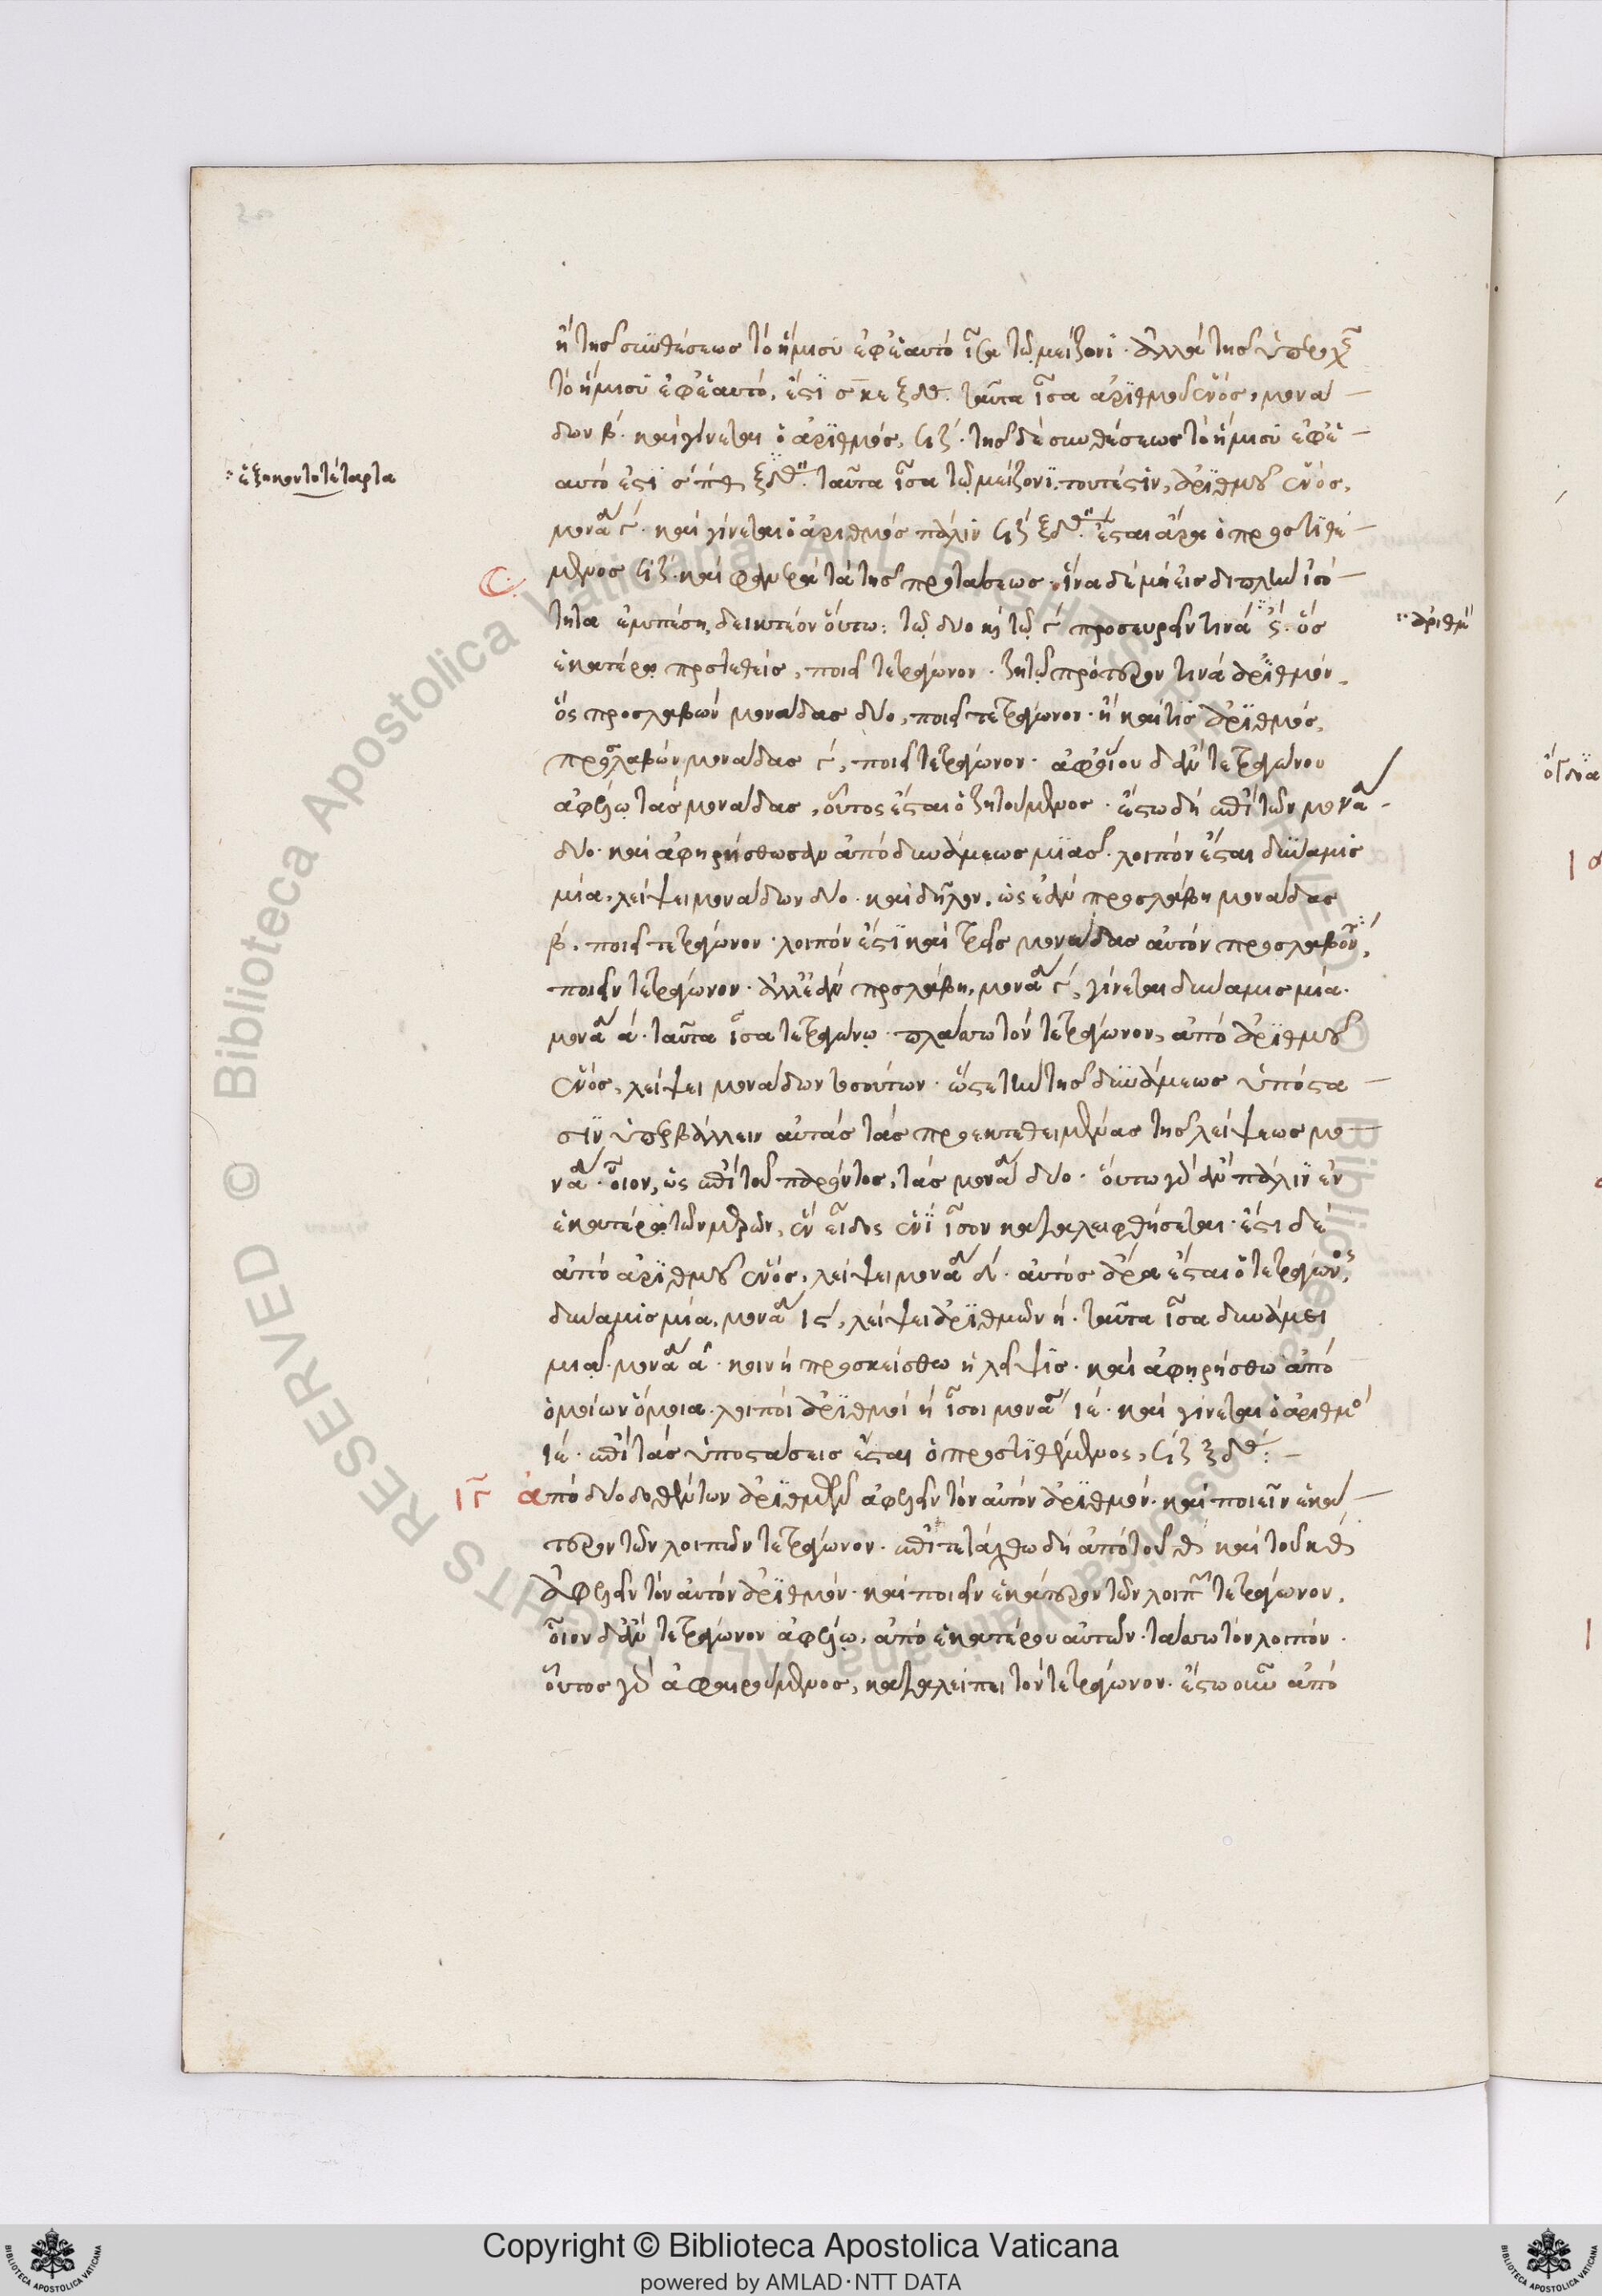 ἢ τῆς συνθέσεως τὸ ἥμισυ ἐφ' ἑαυτὸ ἴσα τῷ μείζονι. ἀλλὰ τῆς ὑπεροχῆς
τὸ ἥμισυ ἐφ' ἑαυτό, ἐστὶ σκε ξδ. ταῦτα ἴσα ἀριθμῷ ἑνός, μονά
δων β. καὶ γίνεται ὁ ἀριθμός, ϟζ. τῆς δὲ συνθέσεως τὸ ἥμισυ ἐφ' ἑ
∵ ἑξηκοντοτέταρτα
αυτό ἐστι σπθ ξδ. ταῦτα ἴσα τῷ μείζονι. τουτέστιν, ἀριθμοῦ ἑνός,
μονάδ γ. καὶ γίνεται ὁ ἀριθμὸς πάλιν ϟζ ξδ. ἔσται ἄρα ὁ προστιθέ
μενος ϟζ. καὶ φανερὰ τὰ τῆς προτάσεως. ἵνα δὲ μὴ εἰς διπλῆν ἰσό
τητα ἐμπέσῃ, δεικτέον οὕτω: τῷ δύο κ τῷ γ προσευρεῖν τινὰ ∵ ς. ὅς
∵ ἀριθμ
ἑκατέρῳ προστεθείς, ποιεῖ τετράγωνον. ζητῶ πρότερον τινὰ ἀριθμόν,
ὃς προσλαβὼν μονάδας δύο, ποιεῖ τετράγωνον. ἢ καὶ τίς ἀριθμός,
προσλαβὼν μονάδας γ, ποιεῖ τετράγωνον. ἀφ' οἵου δ' ἂν τετραγώνου
ἀφέλω τὰς μονάδας, οὗτος ἔσται ὁ ζητούμενος. ἔστω δὴ ἐπὶ τῶν μονάδ
δύο. καὶ ἀφῃρήσθωσαν ἀπὸ δυνάμεως μιᾶς. λοιπὸν ἔσται δύναμις
μία, λείψει μονάδων δύο. καὶ δῆλον, ὡς ἐὰν προσλάβῃ μονάδας
β, ποιεῖ τετράγωνον. λοιπόν ἐστι καὶ τρεῖς μονάδας αὐτὸν προσλαβόν,
ποιεῖν τετράγωνον. ἀλλ' ἐὰν προσλάβῃ, μονάδ γ, γίνεται δύναμις μία.
μονάδ α. ταῦτα ἴσα τετραγώνῳ. πλάσσω τὸν τετράγωνον, ἀπὸ ἀριθμοῦ
ἑνός, λείψει μονάδων τοσούτων. ὥστε τὴν τῆς δυνάμεως ὑπόστα
σιν ὑπερβάλλειν αὐτὰς τὰς προεκτεθειμένας τῆς λείψεως μο
νάδ. οἷον, ὡς ἐπὶ τοῦ παρόντος, τὰς μονάδ δύο. οὕτω γὰρ ἂν πάλιν ἐν
ἑκατέρῳ τῶν μερῶν, ἓν εἶδος ἑνὶ ἴσον καταλειφθήσεται. ἔστι δὲ
ἀπὸ ἀριθμοῦ ἑνός, λείψει μονάδ δ. αὐτὸς ἄρα ἔσται ὁ τετράγωνος,
δύναμις μία, μονάδ ις, λείψει ἀριθμῶν η. ταῦτα ἴσα δυνάμει
μιᾷ. μονάδ α. κοινὴ προσκείσθω ἡ λεῖψις. καὶ ἀφῃρήσθω ἀπὸ
ὁμοίων ὅμοια. λοιποὶ ἀριθμοὶ η ἴσοι μονάδ ιε. καὶ γίνεται ὁ ἀριθμὸ
ιε. ἐπὶ τὰς ὑποστάσεις ἔσται ὁ προστιθέμενος, ϟζ ξδ:
ιγ ἀπὸ δύο δοθέντων ἀριθμῶν ἀφελεῖν τὸν αὐτὸν ἀριθμόν. καὶ ποιεῖν ἑκά
τερον τῶν λοιπῶν τετράγωνον. ἐπιτετάχθω δὴ ἀπὸ τοῦ θ καὶ τοῦ κθ
ἀφελεῖν τὸν αὐτὸν ἀριθμόν. καὶ ποιεῖν ἑκάτερον τῶν λοιπῶν τετράγωνον.
οἷον δ' ἂν τετράγωνον ἀφέλω, ἀπὸ ἑκατέρου αὐτῶν. τάσσω τὸν λοιπόν.
οὗτος γὰρ ἀφαιρούμενος, καταλείπει τὸν τετράγωνον. ἔστω οὖν ἀπὸ
Copyright © Biblioteca Apostolica Vaticana
powered by AMLAD·NTT DATA